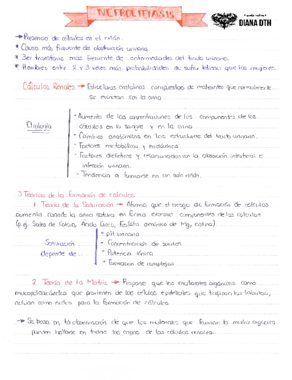 NEFROLITIASIS
DIANA DTH
→ Presencia de cálculos en el riñón.
* Causa más frecuente de obstrucción urinaria.
* 3er trastorno más frecuente de enfermedades del tracto urinario.
* Hombres entre 2 y 3 veces más probabilidades de sufrir litiasis que las mujeres.
Cálculos Renales → Estructuras cristalinas compuestas de materiales que normalmente
se excretan con la orina.
Etiología
• Aumento de las concentraciones de los componentes de los
cálculos en la sangre y en la orina
• Cambios anatómicos en las estructuras del tracto urinario.
• Factores metabólicos y endócrinos
• Factores dietéticos y relacionados con la absorción intestinal e
infección urinaria.
• Tendencia a formarse en un solo riñón.
3 Teorías de la formación de cálculos.
1. Teoría de la Saturación → Afirma que el riesgo de formación de cálculos
aumenta cuando la orina satura en forma excesiva componentes de los cálculos
(p.ej. Sales de Calcio, Ácido Úrico, Fosfato amónico de Mg, cistina)
Saturación
depende de..
• pH urinario
• Concentración de solutos.
• Potencia iónica
• Formación de complejos
2. Teoría de la Matriz → Propone que los materiales orgánicos como
mucopolisacáridos que provienen de las células epiteliales que tapizan los túbulos,
actúan como nidos para la formación de cálculos.
→ Se basa en la observación de que los materiales que forman la matriz orgánica
pueden hallarse en todas las capas de los cálculos renales.